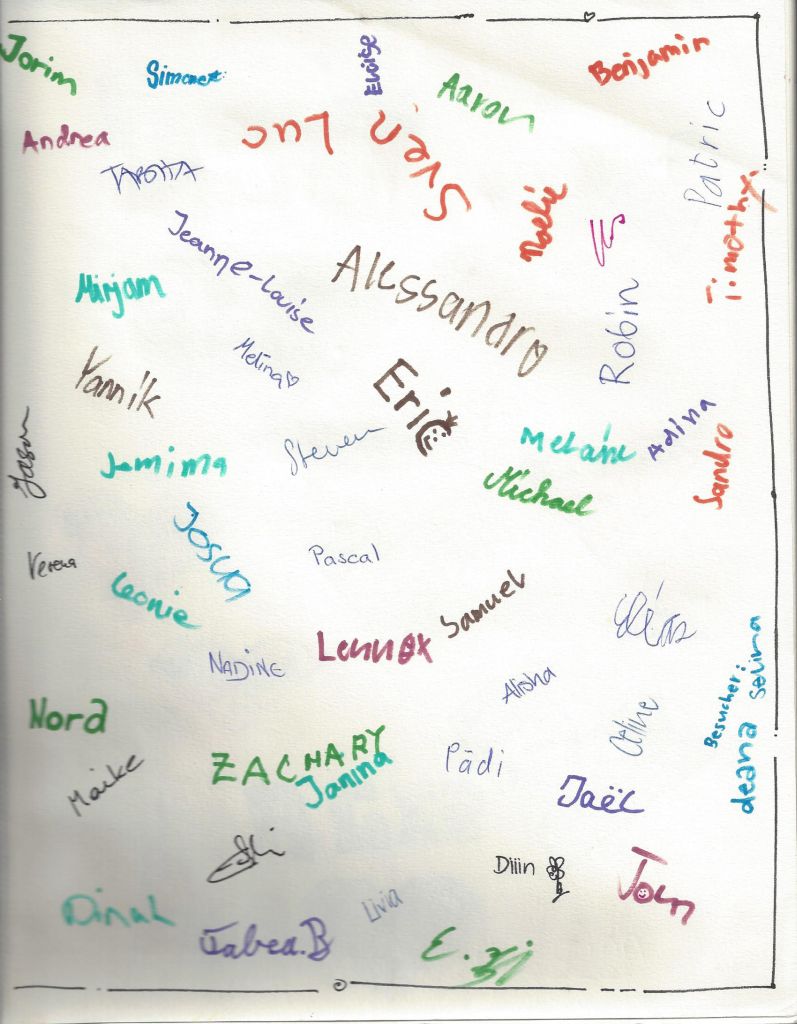 Jorim
Simone
Eloise
Aaron
Benjamin
Andrea
Luc
Sven
Patric
Noelie
Timothy
Jeanne-Louise
Mirjam
Alessandro
Robin
Melina
Yannik
Eric
Jason
Jemima
Steven
Melanie
Adina
Sandro
Michael
Josua
Verena
Pascal
Leonie
Samuel
Elias
NADINE
Lennox
Alisha
Besucher:
deana Selina
Nora
Céline
Maike
ZACHARY
Janina
Pädi
Jaël
Diiin
Join
Dinah
Tabea.B
Livia